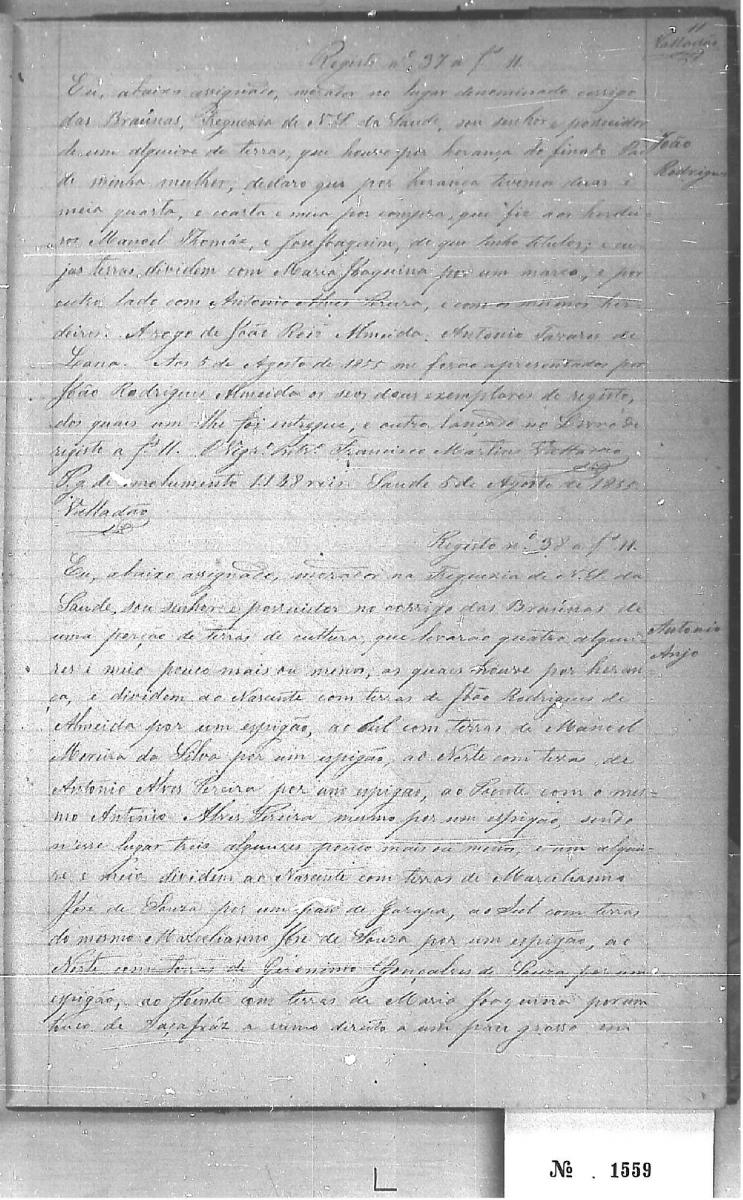 11
Valladão
Registo nº 37 a fˢ 11.
Eu, abaixo assignado, morador no lugar denominado corrigo
das Braúnas, Freguezia de N. S. da Saude, sou senhor e possuidor
de um alqueire de terras, que houve por herança do finado Pai
de minha mulher, declaro que por herança tivemos duas e
meia quarta, e coarta e meia por compra, que fiz aos herdei-
ros Manoel Thomáz, e José Joaquim, de que tenho titulos; e cu-
jas terras dividem com Maria Joaquina por um marco, e por
outro lado com Antonio Alves Pereira, e com os mesmos her-
deiros. A rogo de João Roiz Almeida. Antonio Tavares de
Aos 5 de Agosto de 1855 me forão apresentados por
João Rodrigues Almeida os seos dous exemplares de registo,
dos quais um lhe foi entregue, e outro lançado no Livro de
registo a fˢ 11. O Vigrº Francisco Martins Valladão
Pg. de emolumento 1138 reis. Saude 5 de Agosto de 1855.
Valladão
João
Rodrigues
Registo nº 38 a fˢ 11.
Eu, abaixo assignado, morador na Freguezia de N. S. da
Saude, sou senhor e possuidor no corrigo das Braúnas de
uma porção de terras de cultura, que levarão quatro alquei-
res e meio pouco mais ou menos, as quais houve por heran-
ça, e dividem ao Nascente com terras de João Rodrigues de
Almeida por um espigão, ao Sul com terras de Manoel
Moreira da Silva por um espigão, ao Norte com terras de
Antonio Alves Pereira por um espigão, ao Poente com o mes-
mo Antonio Alves Pereira mesmo por um espigão, sendo
n'esse lugar treis alqueires pouco mais ou menos e um alquei-
re e meio dividem ao Nascente com terras de Marcelianno
José de Souza por um pau de Garapa, ao Sul com terras
do mesmo Marcelianno José de Souza por um espigão, ao
Norte com terras de Gironimo Gonçalves de Souza por um
espigão, ao Poente com terras de Maria Joaquina por um
toco de Saçafráz a rumo direito a um pau grosso em
Antonio
Anjo
№ . 1559